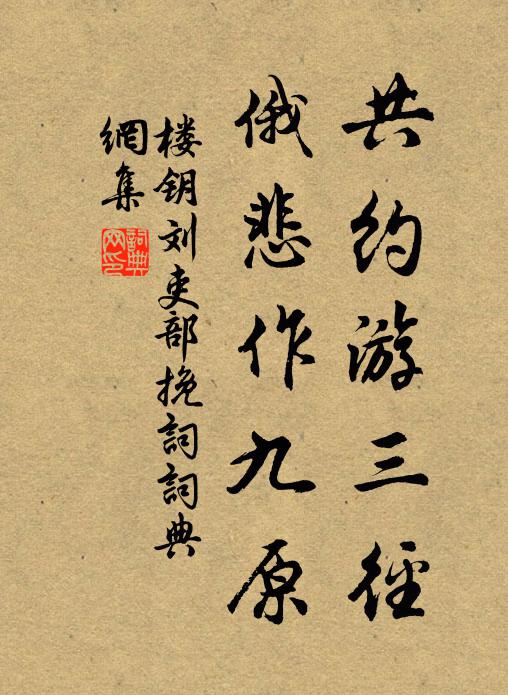 共约游三径
俄悲作九原
楼钥刘吏部挽詞詞典
網集
詞典
网印